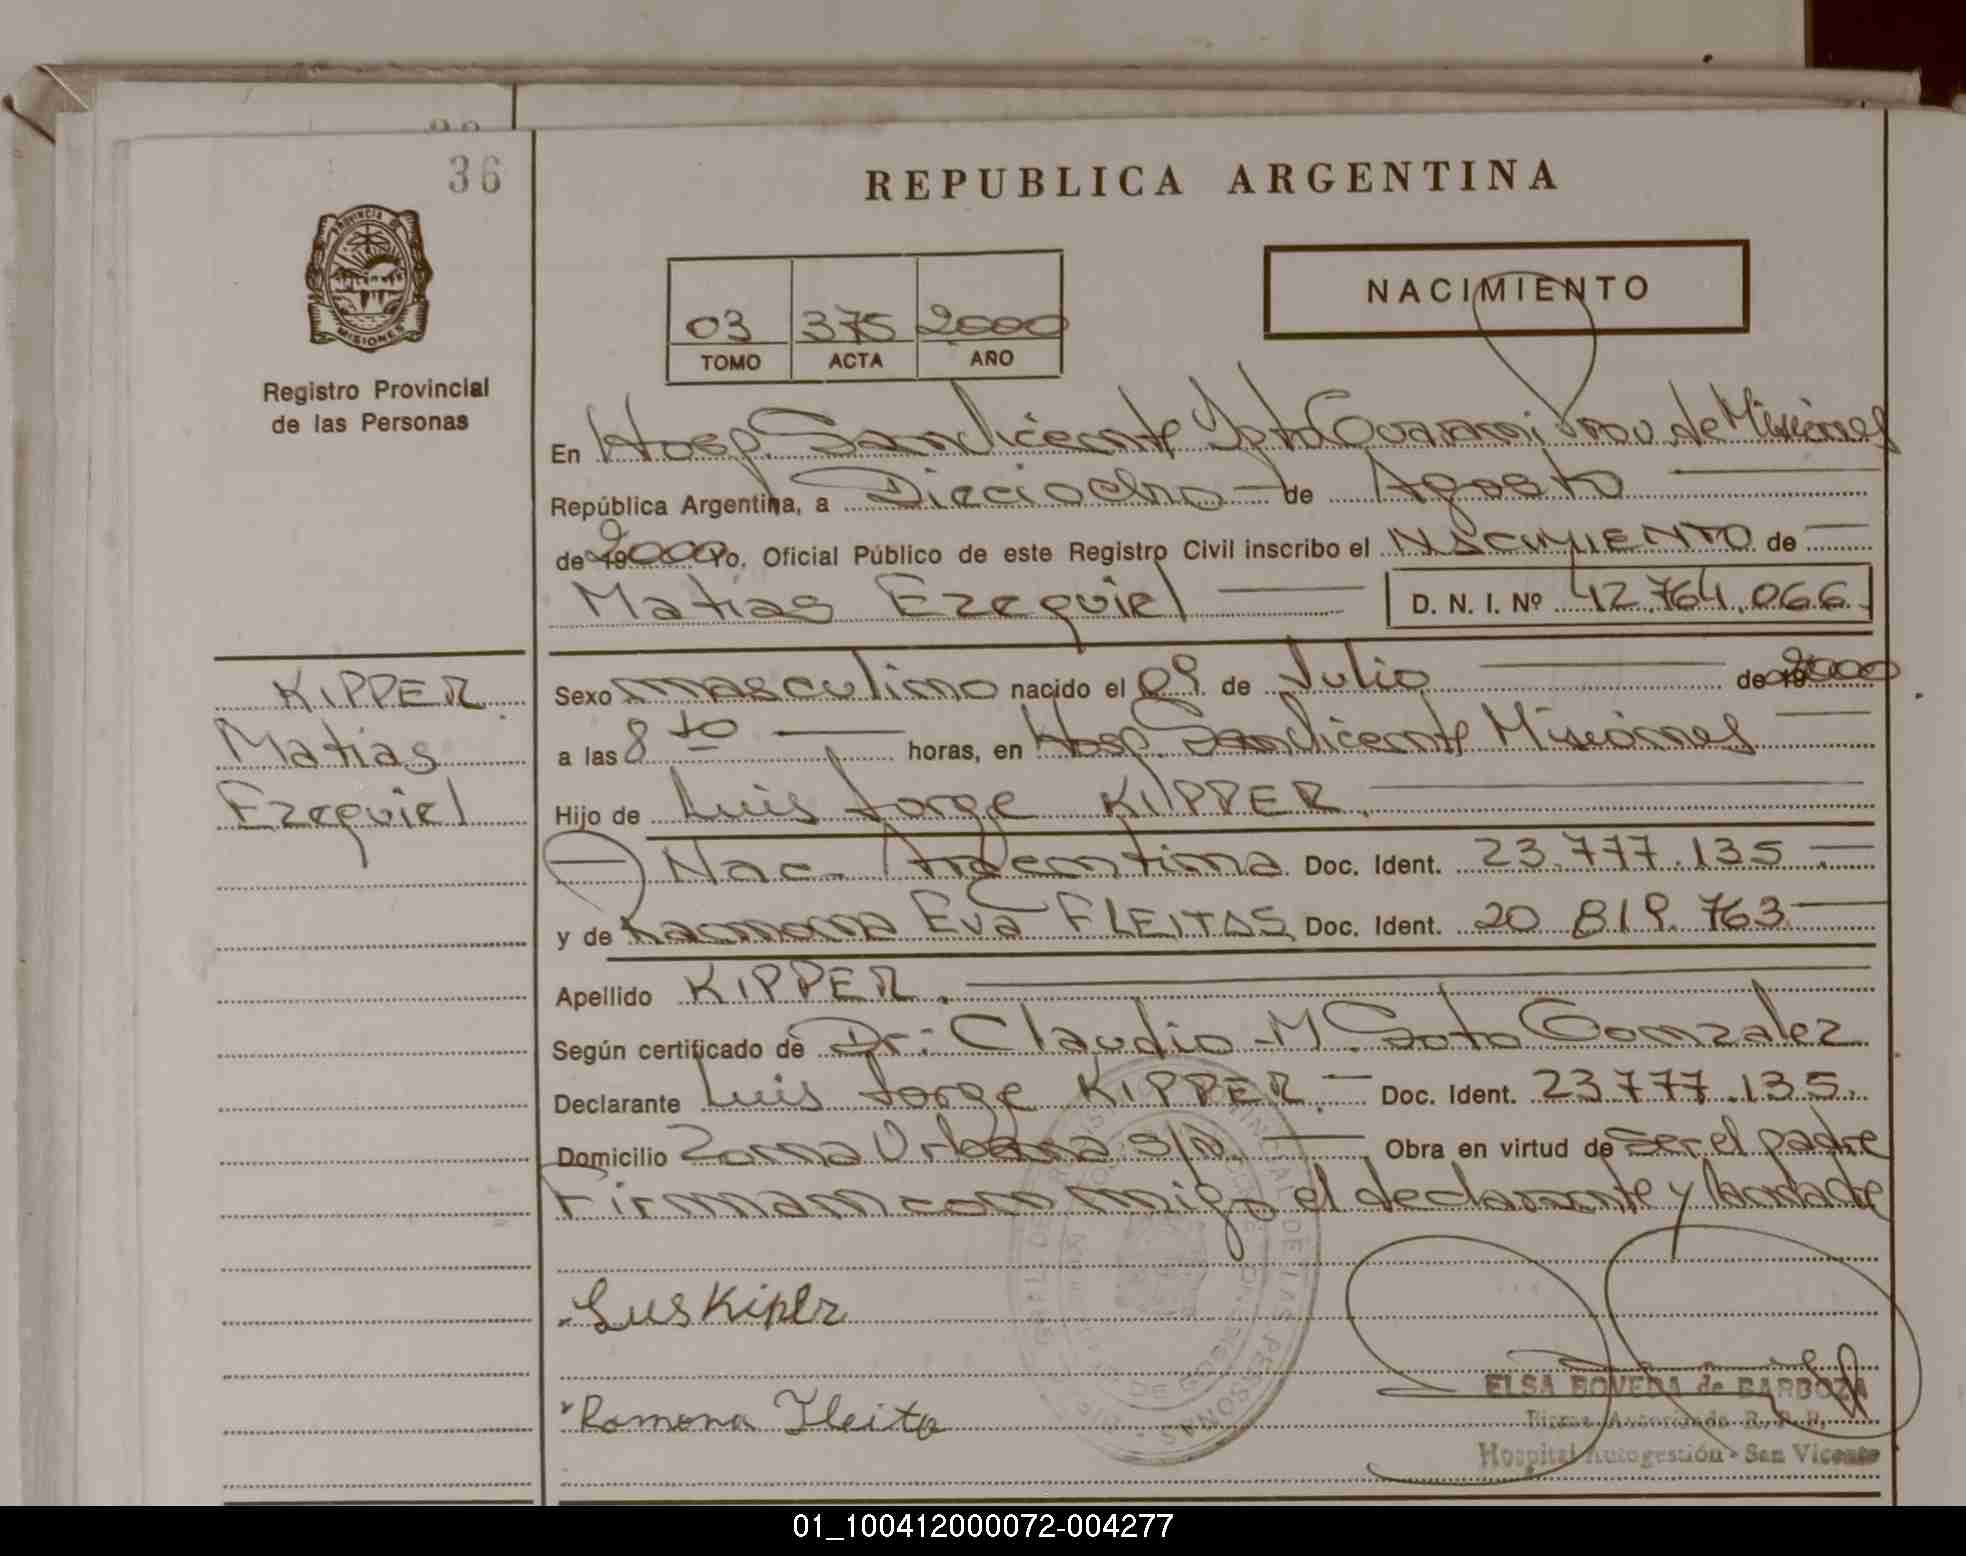 36
REPUBLICA ARGENTINA
PROVINCIA DE
MISIONES
Registro Provincial
de las Personas
NACIMIENTO
03 375 2000
TOMO ACTA AÑO
En Hosp. San Vicente Dpto Guarani Prov. de Misiones
República Argentina, a Dieciocho de Agosto
de 2000 Yo, Oficial Público de este Registro Civil inscribo el NACIMIENTO de
Matias Ezequiel D. N. I. Nº 42.764.066
KIPPER
Matias
Ezequiel
Sexo masculino nacido el 09 de Julio de 2000
a las 8 10 horas, en Hosp. San Vicente Misiones
Hijo de Luis Jorge KIPPER.
Nac. Argentina Doc. Ident. 23.777.135
y de Ramona Eva FLEITAS Doc. Ident. 20 819.763
Apellido KIPPER.
Según certificado de Dr: Claudio M. Soto Gonzalez
Declarante Luis Jorge KIPPER. Doc. Ident. 23.777.135.
Domicilio Zona Urbana s/n. Obra en virtud de ser el padre
Firman conmigo el declarante y la madre
Lus Kiper
Ramona Fleita
ELSA BOVEDA de BARBOZA
Firma Autorizada R. P. P.
Hospital Autogestión - San Vicente
01_100412000072-004277